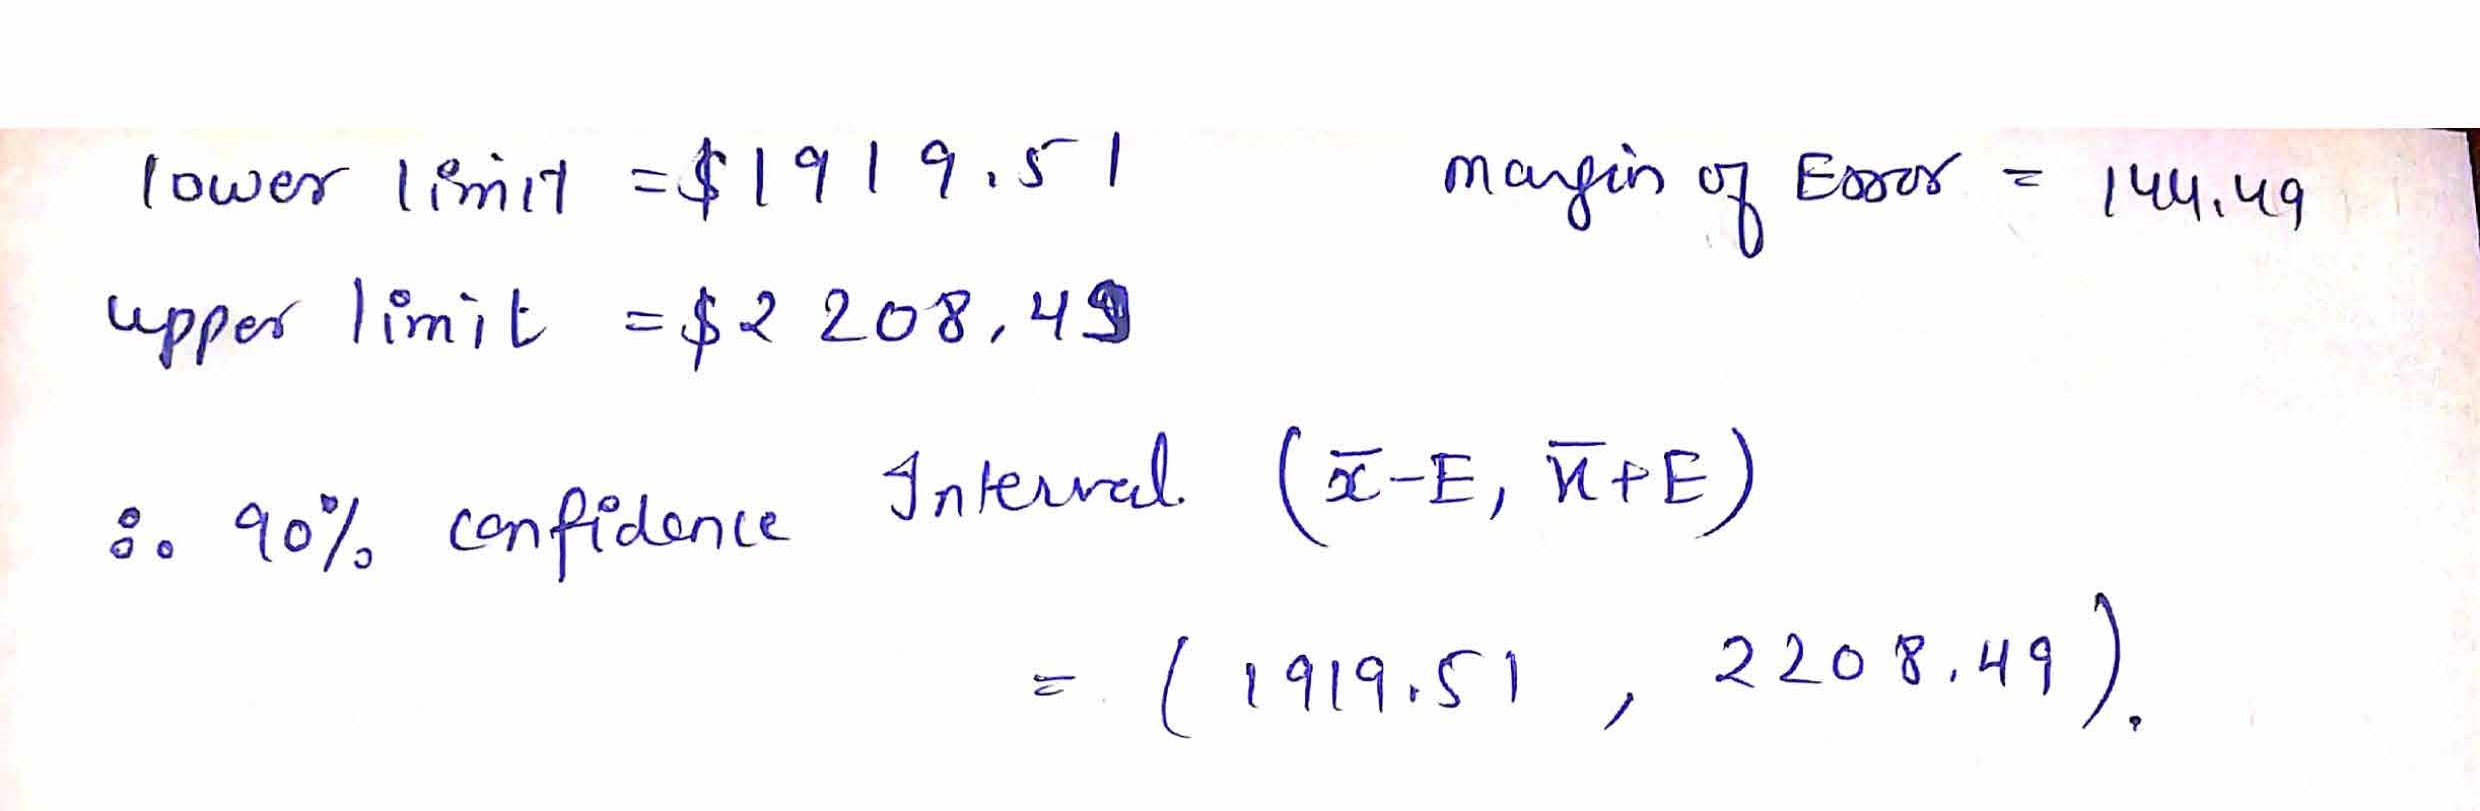 lower limit = $1919.51 margin of Error = 144.49
upper limit = $2208.49
∴ 90% confidence Interval (x̄-E, x̄+E)
= (1919.51, 2208.49).